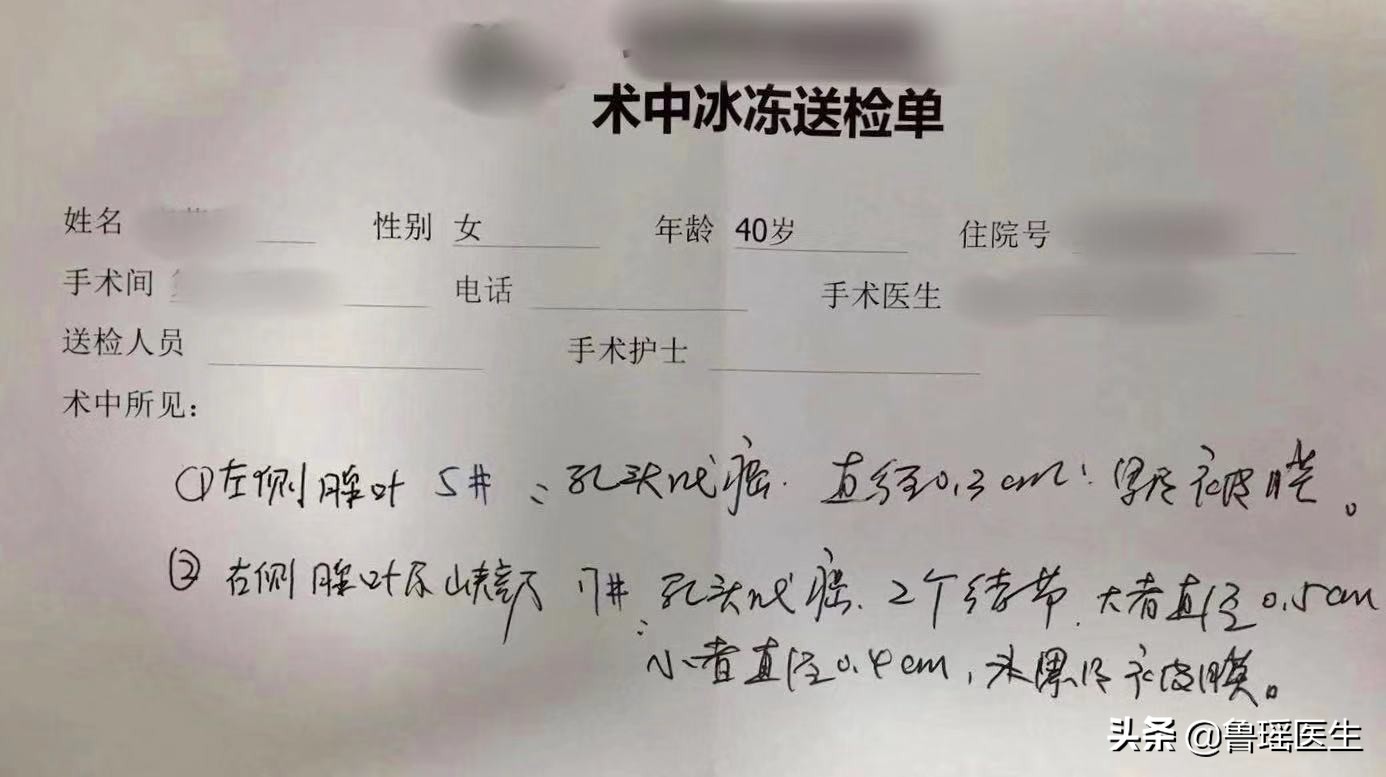 术中冰冻送检单
姓名 性别 女 年龄 40岁 住院号
手术间 电话 手术医生
送检人员 手术护士
术中所见：
①左侧腺叶 5#：乳头状癌. 直径0.3cm. 累及被膜。
② 右侧腺叶及峡部 7#：乳头状癌. 2个结节. 大者直径0.5cm
小者直径0.4cm，未累及被膜。
头条 @鲁瑶医生